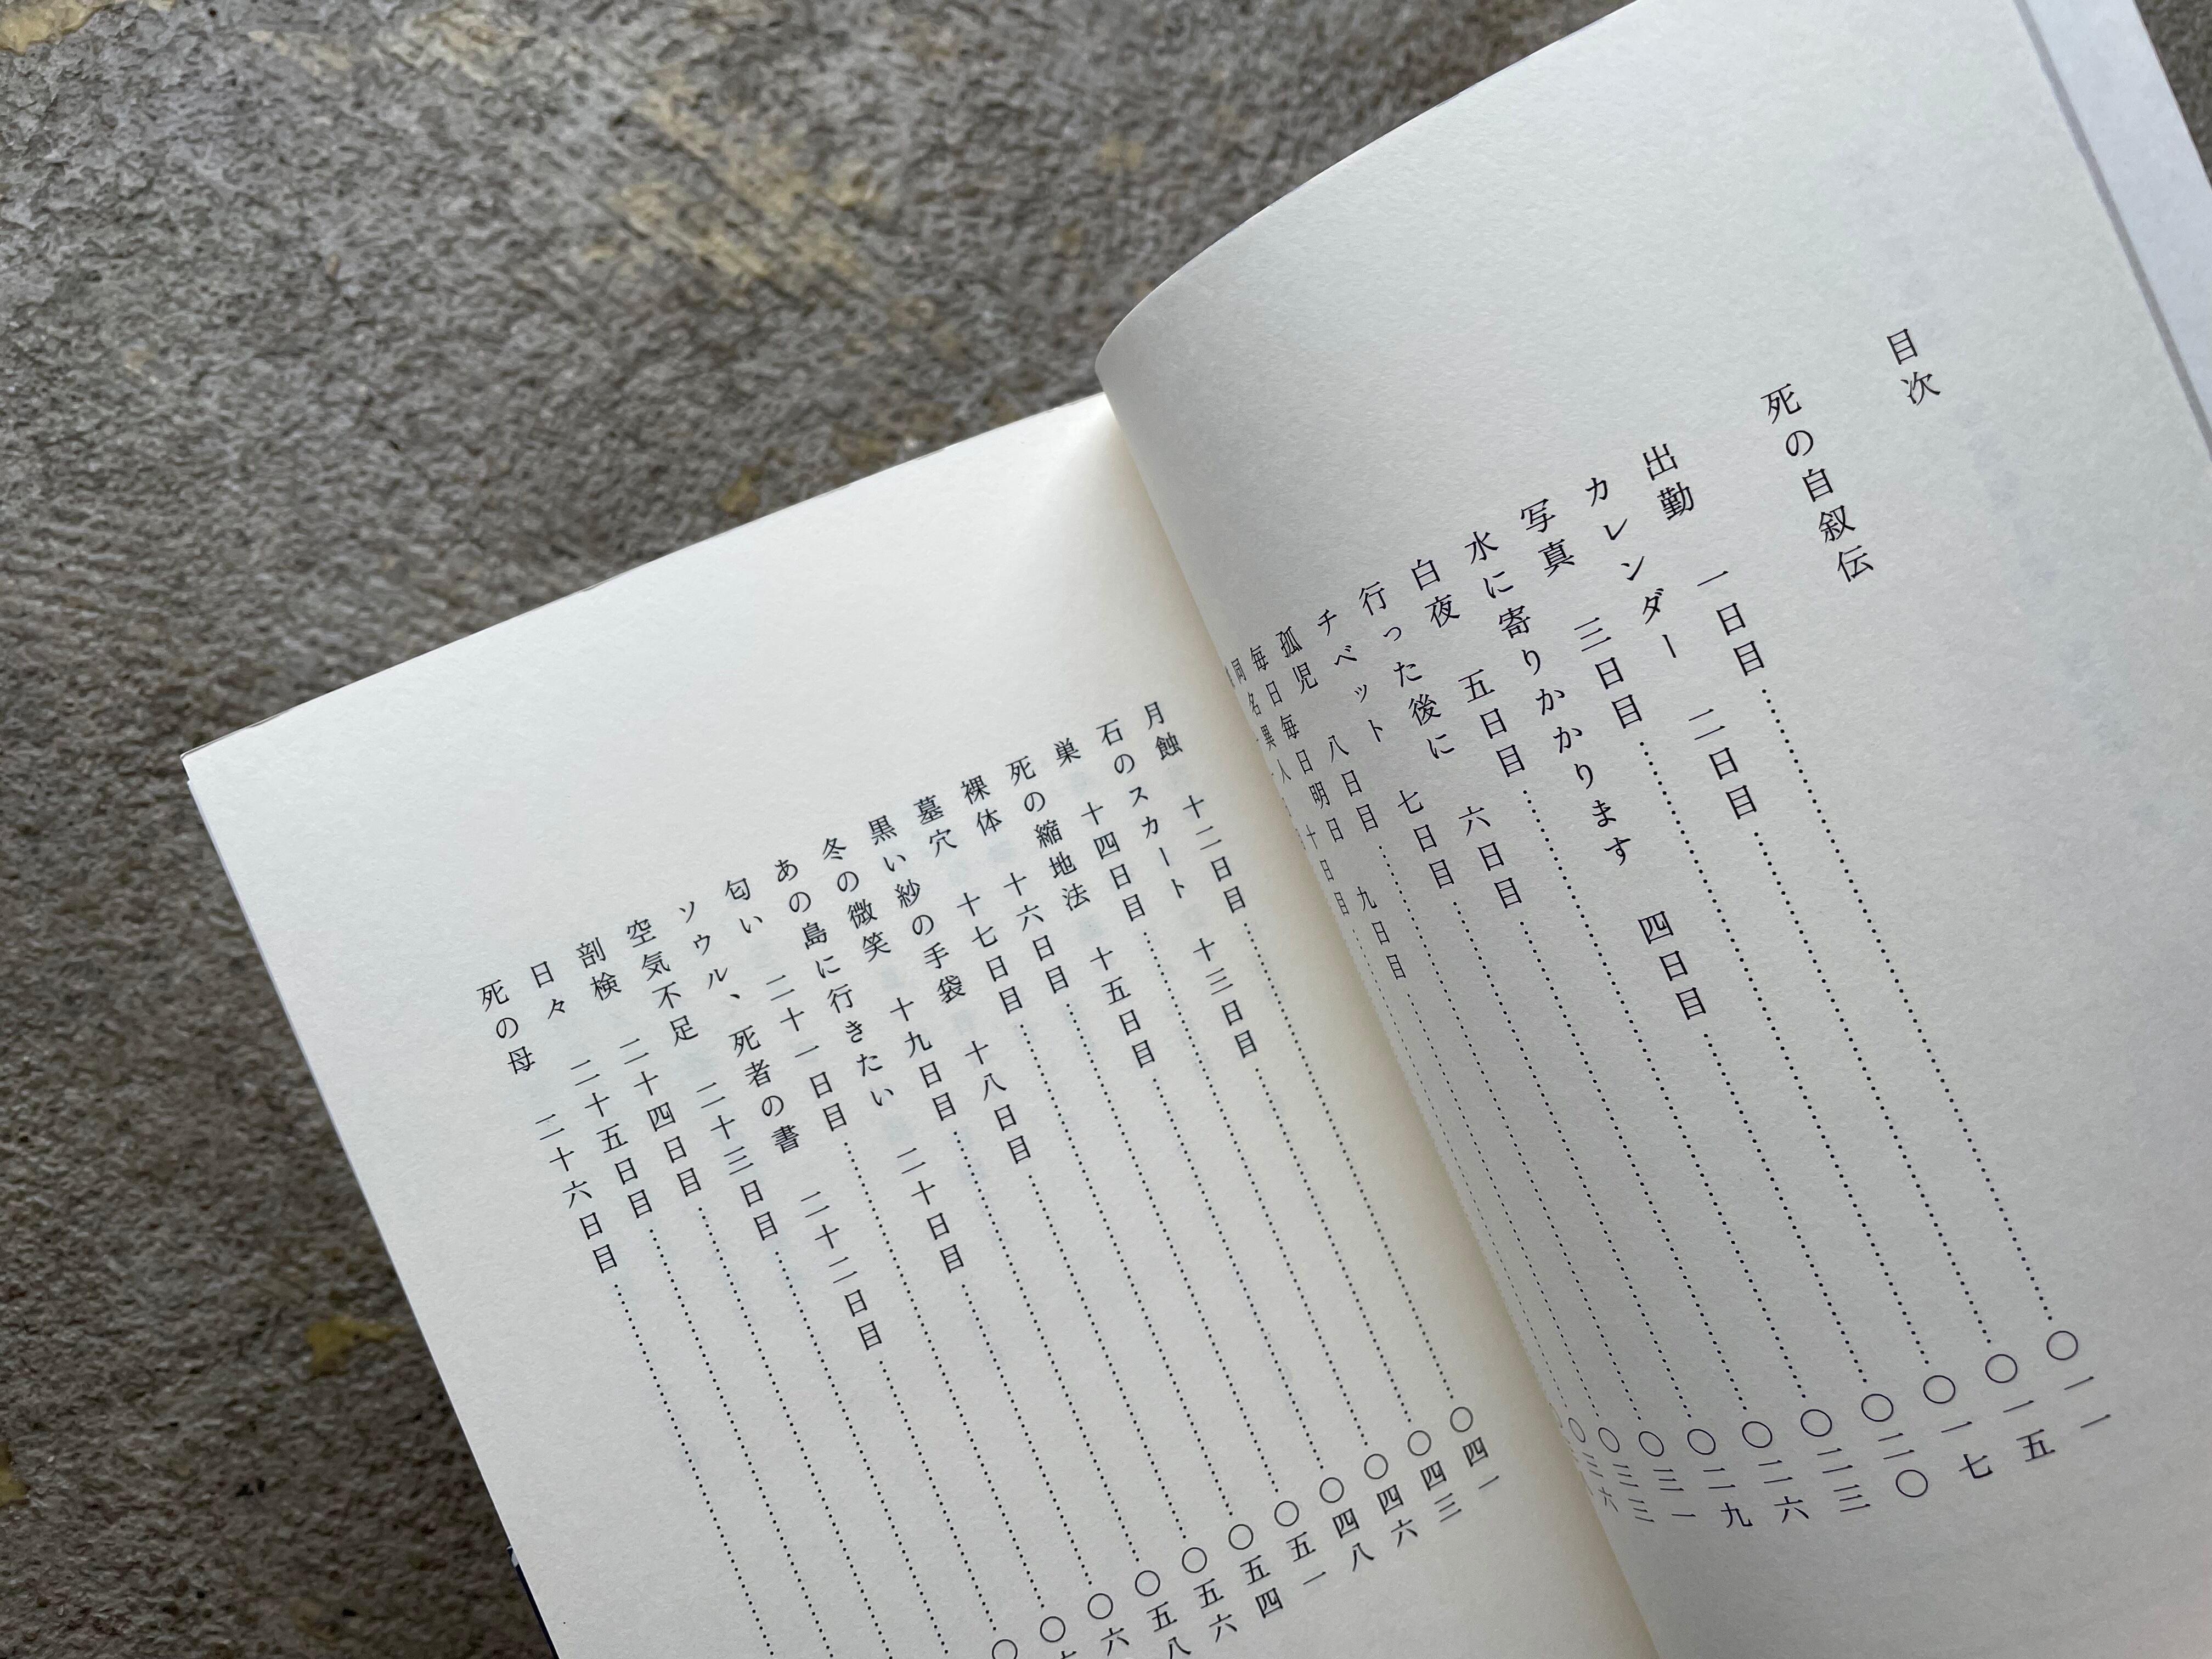 目次
死の自叙伝
出勤 一日目……〇一一
カレンダー 二日目……〇一五
写真 三日目……〇一七
水に寄りかかります 四日目……〇二〇
白夜 五日目……〇二三
行った後に 六日目……〇二六
チベット 七日目……〇二九
孤児 八日目……〇三一
毎日毎日明日 九日目……〇三三
同名異人 十日目……〇三六
月蝕 十二日目……〇四一
石のスカート 十三日目……〇四三
巣 十四日目……〇四六
死の縮地法 十五日目……〇四八
裸体 十六日目……〇五一
墓穴 十七日目……〇五四
黒い紗の手袋 十八日目……〇五六
冬の微笑 十九日目……〇五八
あの島に行きたい 二十日目……〇六
匂い 二十一日目……〇
ソウル、死者の書 二十二日目……〇
空気不足 二十三日目……
剖検 二十四日目……
日々 二十五日目……
死の母 二十六日目……